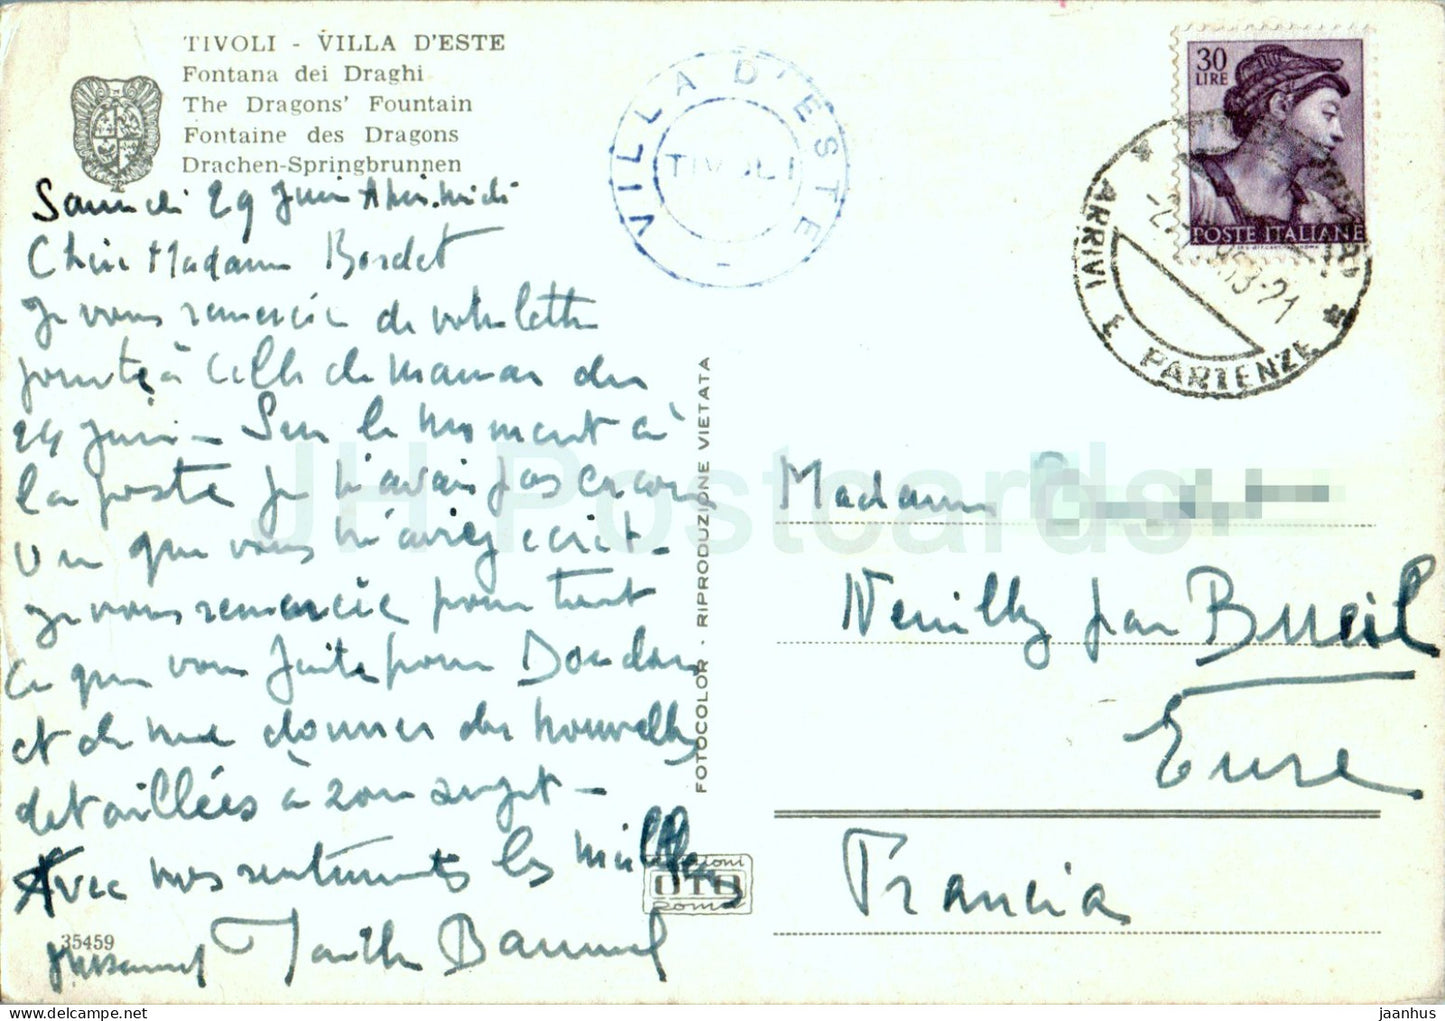 TIVOLI - VILLA D'ESTE
Fontana dei Draghi
The Dragons' Fountain
Fontaine des Dragons
Drachen-Springbrunnen
Samedi 29 Juin Après-midi
Chère Madame Bordet
Je vous remercie de votre lettre
jointe à celle de maman du
24 juin - Sur le moment à
la poste je n'avais pas encore
vu que vous m'aviez écrit -
Je vous remercie pour tout
ce que vous faites pour Doudou
et de me donner des nouvelles
détaillées à son sujet -
Avec nos sentiments les meilleurs
35459
VILLA D'ESTE
TIVOLI
30
LIRE
POSTE ITALIANE
ARRIVI E PARTENZE
FOTOCOLOR - RIPRODUZIONE VIETATA
Edizioni
OTO
Roma
Madame
Neuilly par Bueil
Eure
Francia
JH Postcards
jaanhus
HipPostcard.com